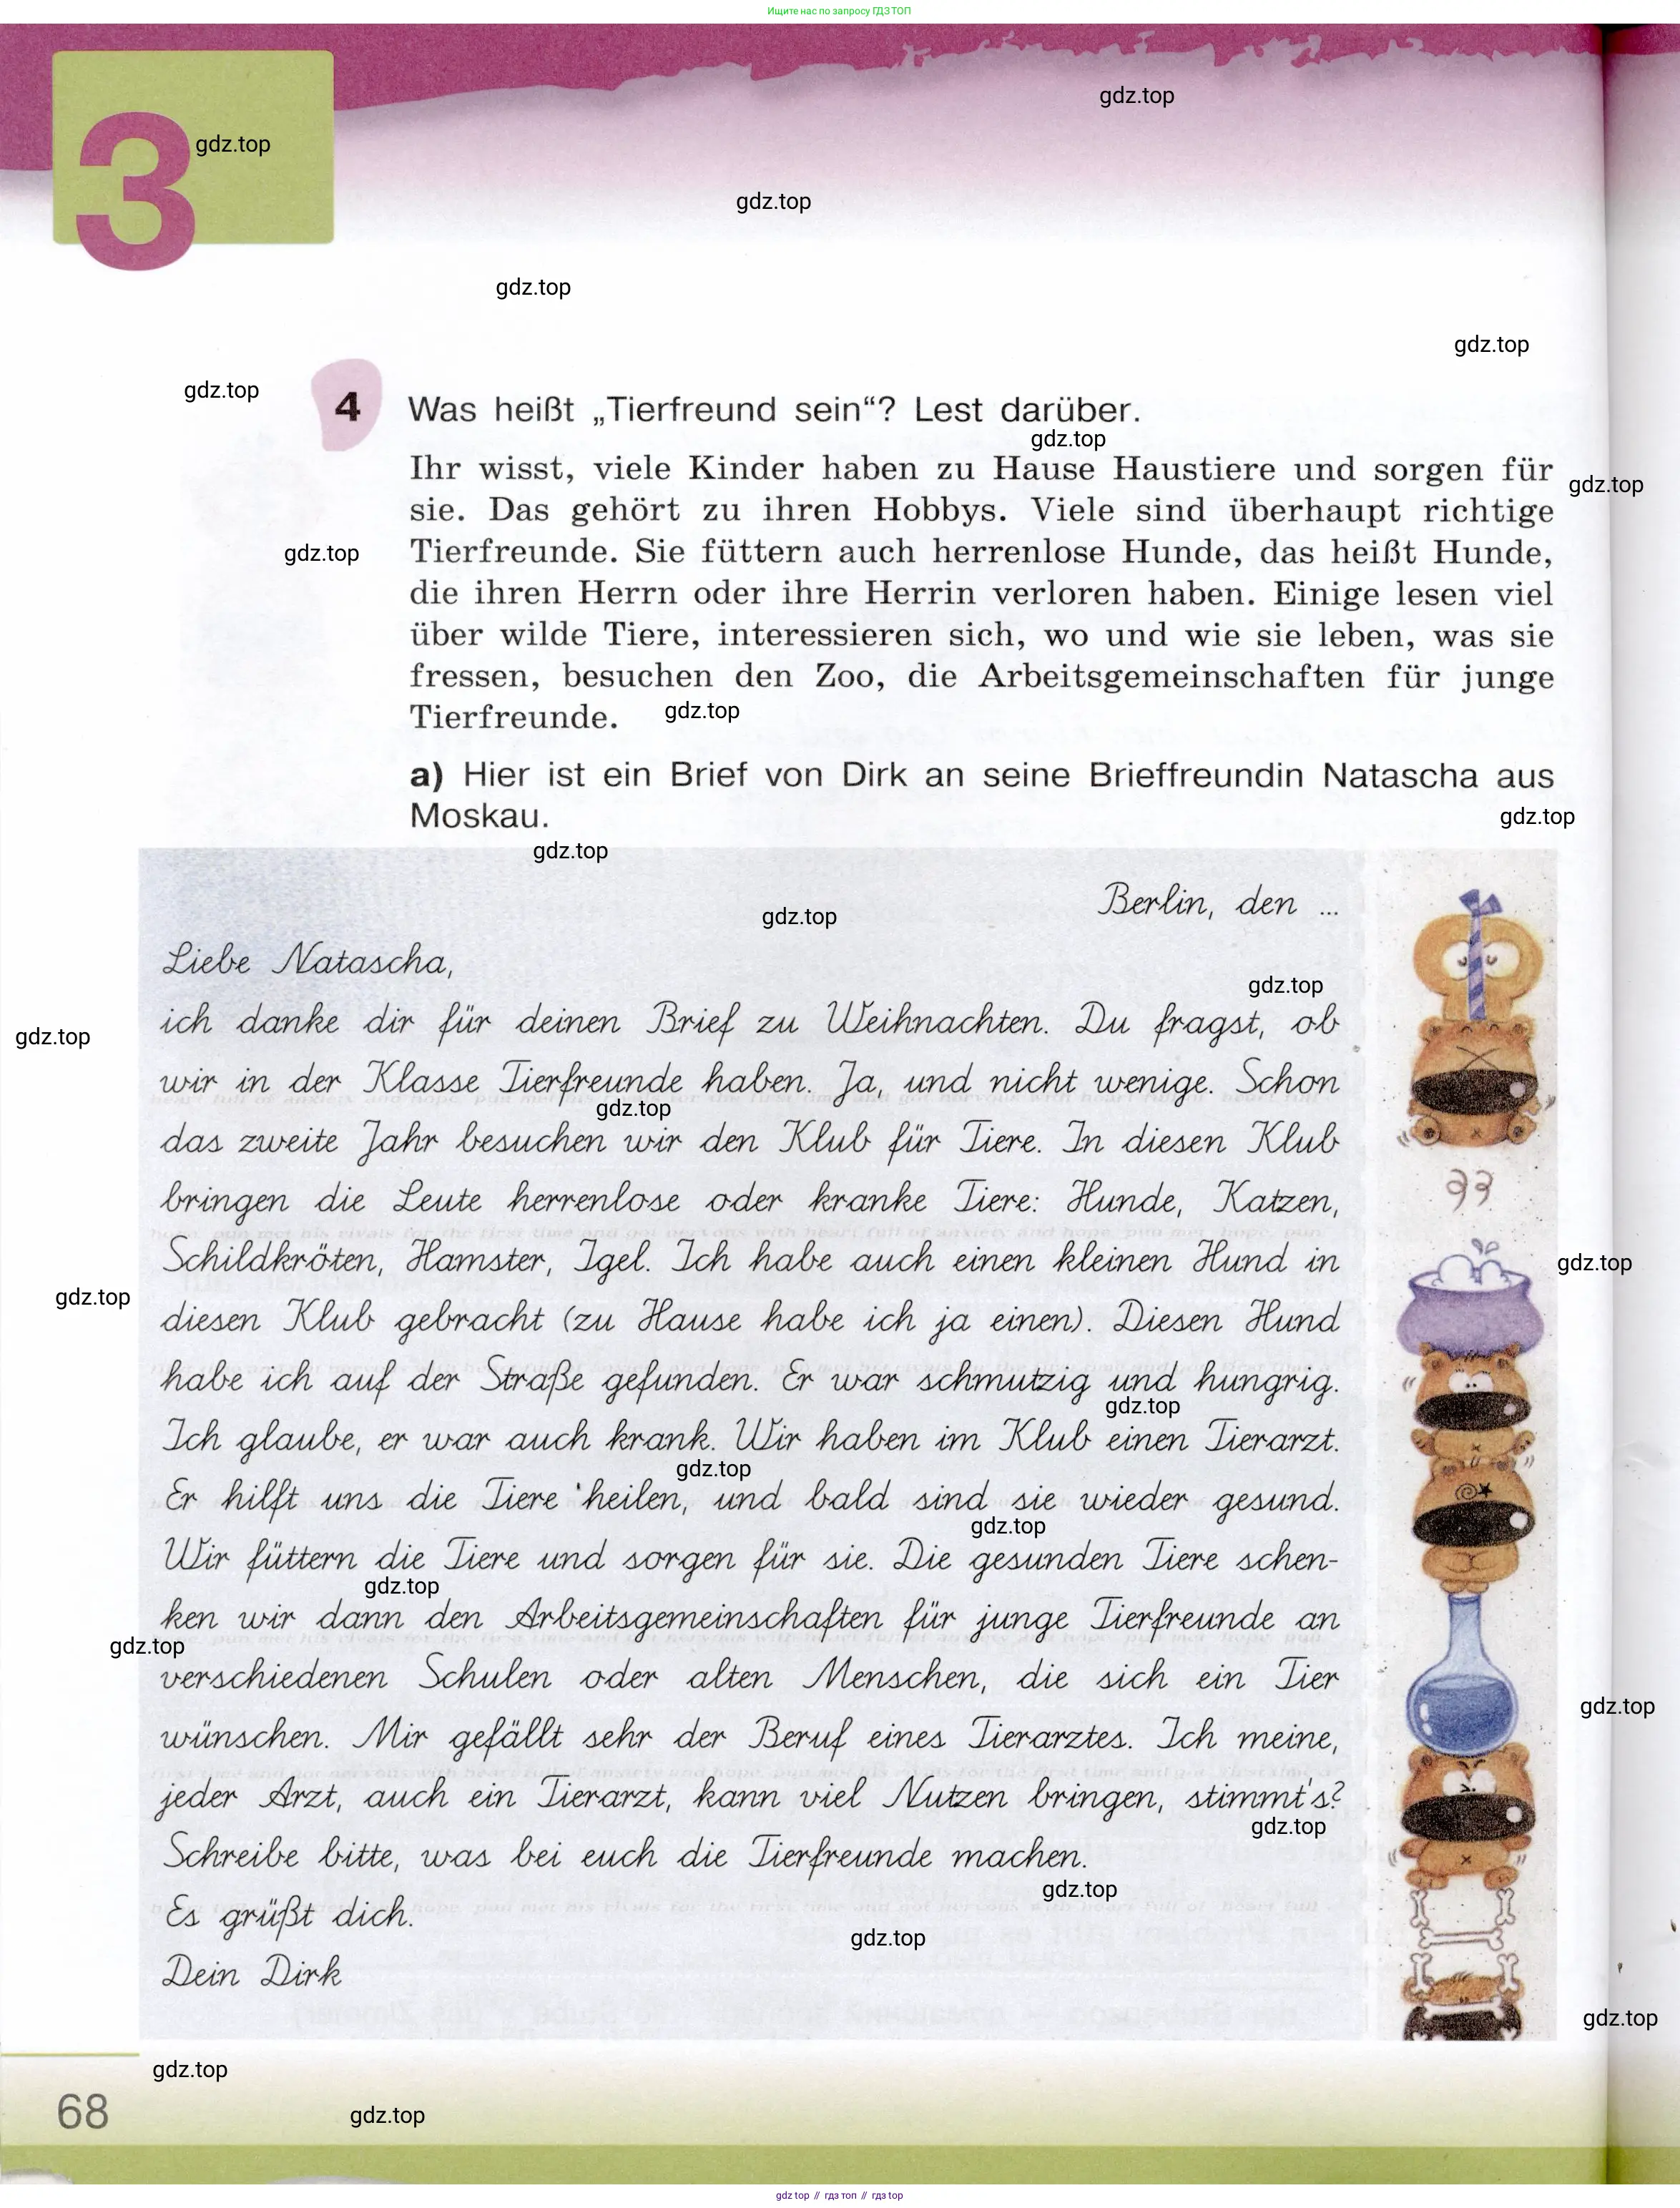 Ищите нас по запросу ГДЗ ТОП
gdz.top
3
gdz.top
gdz.top
gdz.top
gdz.top
gdz.top
4 Was heißt „Tierfreund sein“? Lest darüber.
gdz.top
Ihr wisst, viele Kinder haben zu Hause Haustiere und sorgen für
gdz.top
sie. Das gehört zu ihren Hobbys. Viele sind überhaupt richtige
gdz.top
Tierfreunde. Sie füttern auch herrenlose Hunde, das heißt Hunde,
die ihren Herrn oder ihre Herrin verloren haben. Einige lesen viel
über wilde Tiere, interessieren sich, wo und wie sie leben, was sie
fressen, besuchen den Zoo, die Arbeitsgemeinschaften für junge
Tierfreunde.
gdz.top
a) Hier ist ein Brief von Dirk an seine Brieffreundin Natascha aus
Moskau.
gdz.top
gdz.top
Berlin, den ...
gdz.top
Liebe Natascha,
gdz.top
ich danke dir für deinen Brief zu Weihnachten. Du fragst, ob
gdz.top
wir in der Klasse Tierfreunde haben. Ja, und nicht wenige. Schon
gdz.top
das zweite Jahr besuchen wir den Klub für Tiere. In diesen Klub
bringen die Leute herrenlose oder kranke Tiere: Hunde, Katzen,
Schildkröten, Hamster, Igel. Ich habe auch einen kleinen Hund in
gdz.top
gdz.top
diesen Klub gebracht (zu Hause habe ich ja einen). Diesen Hund
habe ich auf der Straße gefunden. Er war schmutzig und hungrig.
gdz.top
Ich glaube, er war auch krank. Wir haben im Klub einen Tierarzt.
gdz.top
Er hilft uns die Tiere heilen, und bald sind sie wieder gesund.
gdz.top
Wir füttern die Tiere und sorgen für sie. Die gesunden Tiere schen-
gdz.top
ken wir dann den Arbeitsgemeinschaften für junge Tierfreunde an
gdz.top
verschiedenen Schulen oder alten Menschen, die sich ein Tier
gdz.top
wünschen. Mir gefällt sehr der Beruf eines Tierarztes. Ich meine,
jeder Arzt, auch ein Tierarzt, kann viel Nutzen bringen, stimmt's?
gdz.top
Schreibe bitte, was bei euch die Tierfreunde machen.
gdz.top
Es grüßt dich.
gdz.top
Dein Dirk
gdz.top
gdz.top
68
gdz.top
gdz top // гдз топ // гдз top